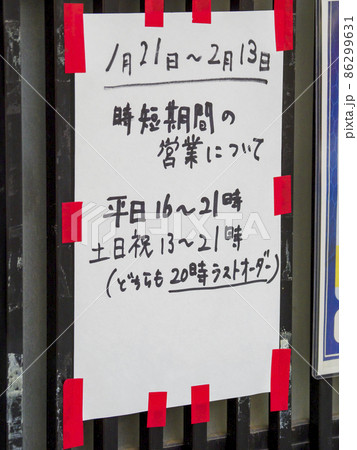 1月21日～2月13日
時短期間の
営業について
平日16～21時
土日祝13～21時
(どちらも20時ラストオーダー)
PIXTA
86299631